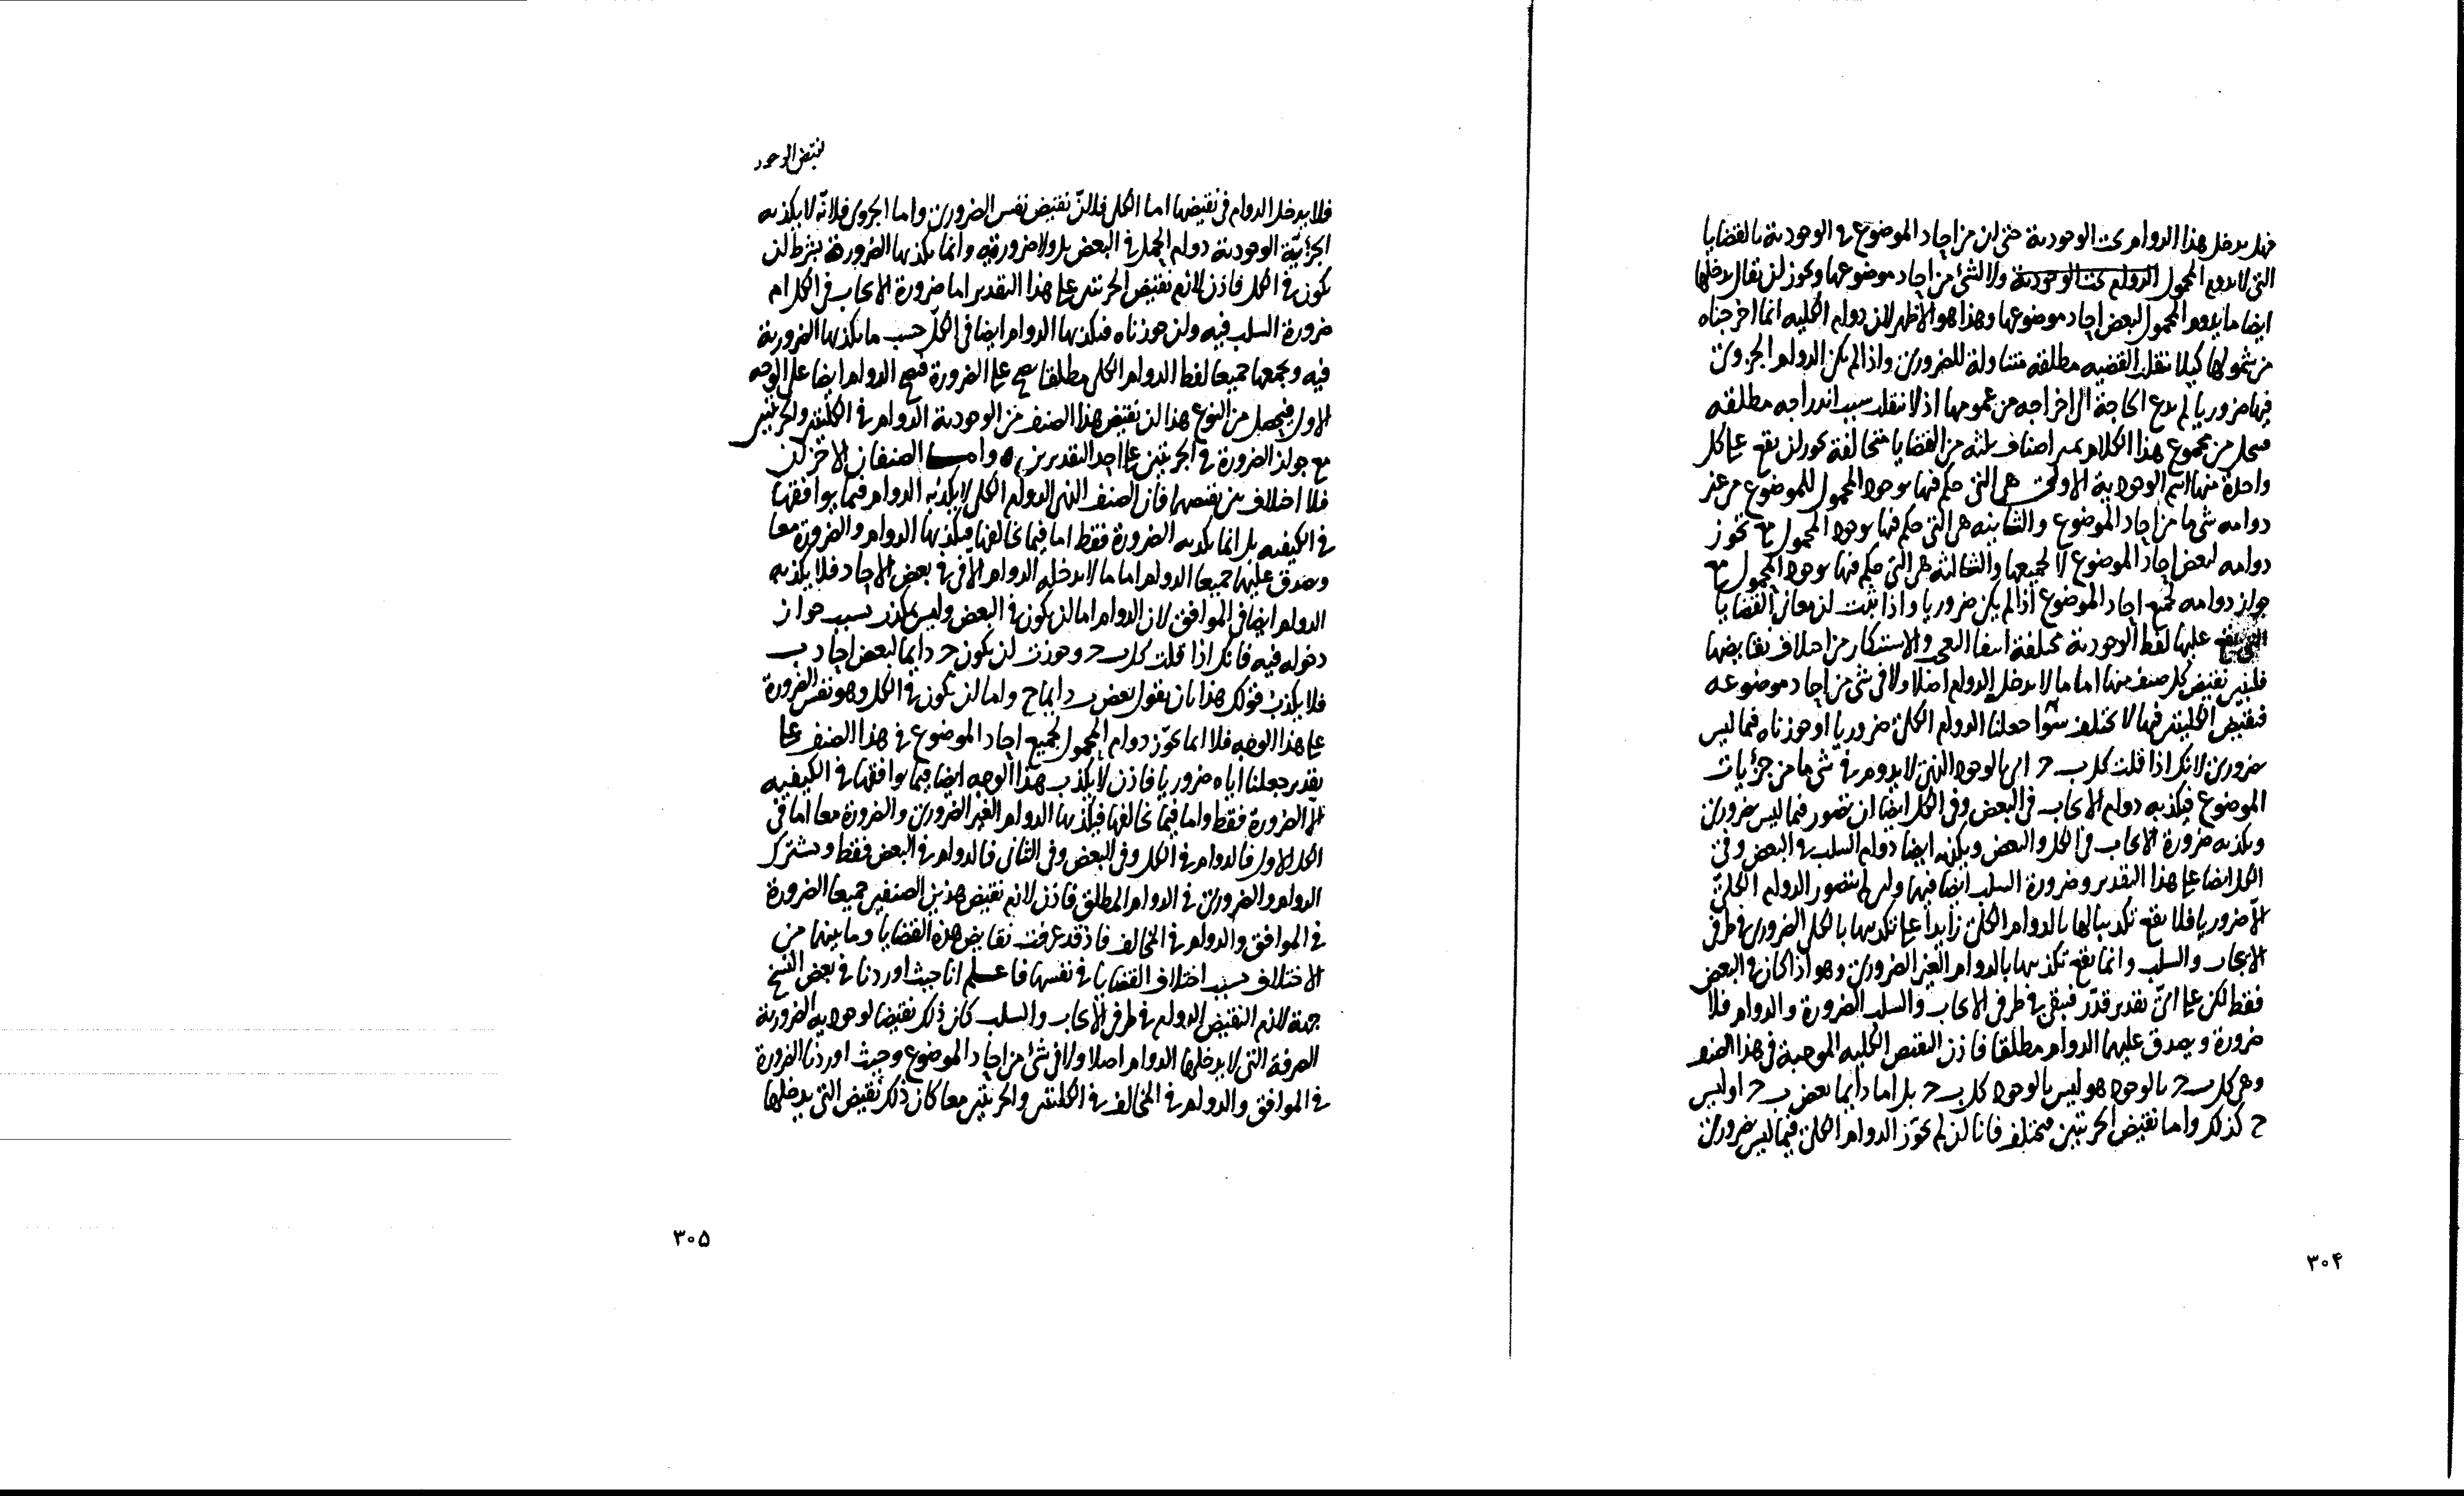 فهل يدخل هذا الدوام تحت الوجودية حتى ان من احاد الموضوع في الوجودية بالقضايا
التى لا يدوم المحمول الدوام تحت الوجودية ولا لشئ من احاد موضوعها ويجوز ان يقال يدخلها
ايضا ما يدوم المحمول لبعض احاد موضوعها وهذا هو الاظهر لان دوام الكليه انما اخرجناه
من شمولها كيلا تنقلب القضيه مطلقه متناولة للضرورى واذا لم يكن الدوام الجزوى
فيها ضروريا لم يدع الحاجة الى اخراجه من عمومها اذ لا تنقلب بسبب اندراجه مطلقه
فتحصل من مجموع هذا الكلام تميز اصناف ثلثه من القضايا متخالفة يجوز ان يقع على كل
واحدة منها اسم الوجودية الاولى هى التى حكم فيها بوجود المحمول للموضوع من غير
دوامه شى ما من احاد الموضوع والثانيه هى التى حكم فيها بوجود المحمول مع تجوز
دوامه لبعض احاد الموضوع لا لجميعها والثالثة هى التى حكم فيها بوجود المحمول مع
جواز دوامه لجميع احاد الموضوع اذا لم يكن ضروريا واذا ثبت ان معانى القضايا
التى يقع عليها لفظ الوجودية مختلفة انتفا التعجب والاستنكار من اختلاف نقايضها
فلنبين نقيض كل صنف منها اما ما لا يدخله الدوام اصلا ولا فى شى من احاد موضوعه
فنقيض الكليتين فيها لا تختلف سوا جعلنا الدوام الكلى ضروريا او جوزناه فيما ليس
بضرورى لانك اذا قلت كل ب ج اى بالوجود الذى لا يدوم فى شى ما من جزئيات
الموضوع فيكذبه دوام الايجاب فى البعض وفى الكل ايضا ان تصور فيما ليس بضرورى
ويكذبه ضرورة الايجاب فى الكل والبعض ويكذبه ايضا دوام السلب فى البعض وفى
الكل ايضا على هذا التقدير وضرورة السلب ايضا فيها وان لم يتصور الدوام الكلى
الا ضروريا فلا يقع تكذيبا لها بالدوام الكلى زايدا على تكذيبها بالكل الضرورى فى طرفى
الايجاب والسلب وانما يقع تكذيبها بالدوام الغير الضرورى وهو اذا كان فى البعض
فقط لكن على اى تقدير قدر فيبقى فى طرفى الايجاب والسلب الضرورة والدوام فلا
ضرورة ويصدق عليهما الدوام مطلقا فاذن النقيض الكليه الموجبة فى هذا الصنف
وهى كل ب ج بالوجود هو ليس بالوجود كل ب ج بل اما دايما بعض ب ج او ليس
ج كذلك واما نقيض الجزئيتين فتختلف فانا ان لم نجوز الدوام الكلى فيما ليس بضرورى
٣٠۴
نقيض الوجود
فلا يدخل الدوام فى نقيضها اما الكل فلان نقيض نفس الضرورى واما الجزوى فلانه لا يكذبه
الجزئية الوجودية دوام الحمل فى البعض بل ولا ضرورته وانما يكذبها الضرورة بشرط ان
يكون فى الكل فاذن لازم نقيض الجزئيتين على هذا التقدير اما ضرورة الايجاب فى الكل ام
ضرورة السلب فيه وان جوزناه فيكذبها الدوام ايضا فى الكل حسب ما يكذبها الضرورية
فيه ويجمعها جميعا لفظ الدوام الكلى مطلقا مع على الضرورة فيقع الدوام ايضا على الوجه
الاول فيحصل من النوع هذا ان نقيض هذا الصنف من الوجودية الدوام فى الكليتين والجزئيتين
مع جواز الضرورة فى الجزئيتين على احد التقديرين ه واما الصنفان الاخران
فلا اختلاف بين نقيضهما فان الصنف الذى الدوام الكلى لا يكذبه الدوام فيما يوافقها
فى الكيفيه بل انما يكذبه الضرورة فقط اما فيما تخالفها فيكذبها الدوام والضرورة معا
ويصدق عليهما جميعا الدوام اما ما لا يدخله الدوام الا فى بعض الاحاد فلا يكذبه
الدوام ايضا فى الموافق لان الدوام اما ان يكون فى البعض وليس يكذب بسبب جواز
دخوله فيه فانك اذا قلت كل ب ج وجوزت ان يكون ج دايما لبعض احاد ب
فلا يكذب قولك هذا بان تقول بعض ب دايما ج واما ان يكون فى الكل وهو نفس الضرورة
على هذا الوجه فلا انما يجوز دوام المحمول لجميع احاد الموضوع فى هذا الصنف على
تقدير جعلنا اياه ضروريا فاذن لا يكذب هذا الوجه ايضا فيما يوافقها فى الكيفيه
الا الضرورة فقط واما فيما تخالفها فيكذبها الدوام الغير الضرورى والضرورة معا اما فى
الكل الاول فالدوام فى الكل وفى البعض وفى الثانى فالدوام فى البعض فقط ويشترك
الدوام والضرورى فى الدوام المطلق فاذن لازم نقيض هذين الصنفين جميعا الضرورة
فى الموافق والدوام فى المخالف فاذ قد عرفت نقايض هذه القضايا وما بينها من
الاختلاف بسبب اختلاف القضايا فى نفسها فاعلم انا حيث اوردنا فى بعض النسخ
جهة لازم النقيض الدوام فى طرفى الايجاب والسلب كان ذلك نقيضا لوجودية الضرورية
الصرفة التى لا يدخلها الدوام اصلا ولا فى شئ من احاد الموضوع وحيث اوردنا الضرورة
فى الموافق والدوام فى المخالف فى الكليتين والجزئيتين معا كان ذلك نقيض التى يدخلها
٣٠۵